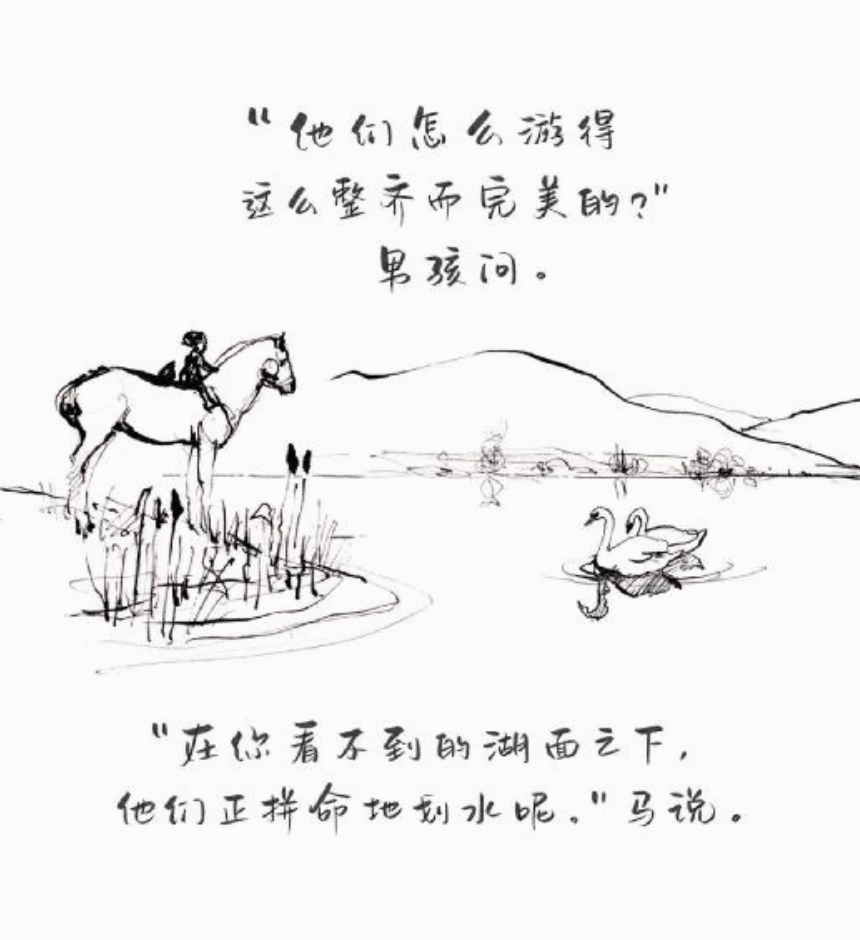 “他们怎么游得
这么整齐而完美的？”
男孩问。
“在你看不到的湖面之下，
他们正拼命地划水呢。”马说。